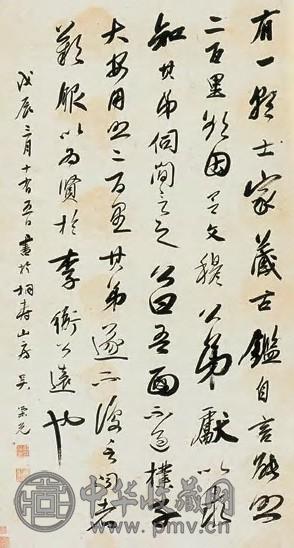 有一朝士家藏古鑑自言能照
二百里欲因呂文穆公弟獻以求
知其弟伺間言之公曰吾面不過楪子
大安用照二百里其弟遂不復言聞者
歎服以為賢於李衛公遠也
戊辰三月十有五日書於山房吳榮光
中华收藏网
www.pmv.cn